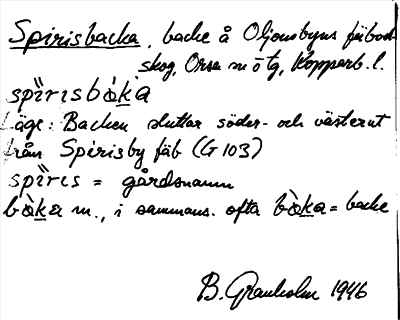 Spirisbacka, backe å Oljonsbyns fäbod-
skog, Orsa sn ö tg, Kopparb. l.
spìrisbàka
Läge: Backen sluttar söder- och västerut
från Spirisby fäb (G 103)
spìris = gårdsnamn
bàka m., i sammans. ofta bàka = backe
B. Granholm 1946